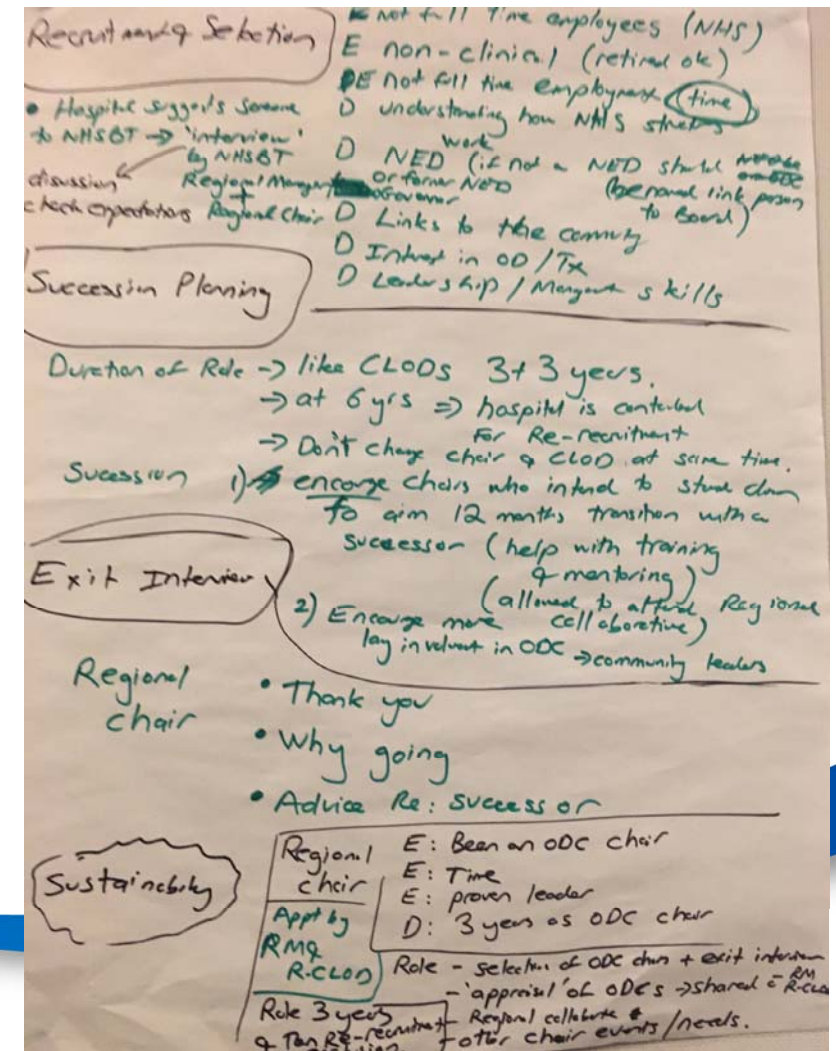 Recruitment & Selection
E not full time employees (NHS)
E non-clinical (retired ok)
E not full time employment (time)
D understanding how NHS
work
D NED (if not a NED should
or former NED
Governor
(be named link person
to Board)
D Links to the
D Interest in OD/Tx
D Leadership / skills
• Hospital suggests someone
to NHSBT → 'interview'
by NHSBT
Regional Manager
+
Regional Chair
discussion
check expectations
Succession Planning
Duration of Role → like CLODs 3+3 years.
→ at 6 yrs ⇒ hospital is contacted
For Re-recruitment
→ Don't change chair & CLOD at same time.
Sucession 1) encorge Chairs who intend to stand down
to aim 12 months transition with a
successor (help with training
& mentoring)
(allowed to attend Regional
collaborative)
2) Encourage more
lay in ODC → community leaders
Exit Interview
Regional
chair
• Thank you
• Why going
• Advice Re: successor
Sustainability
Regional
chair
E: Been an ODC chair
E: Time
E: proven leader
D: 3 years as ODC chair
Appt by
RM &
R-CLOD
Role - selection of ODC chair + exit interview
- 'appraisal' of ODCs → shared RM
R-CLOD
- Regional
- other chair events/needs.
Role 3 years
& Re-recruitment